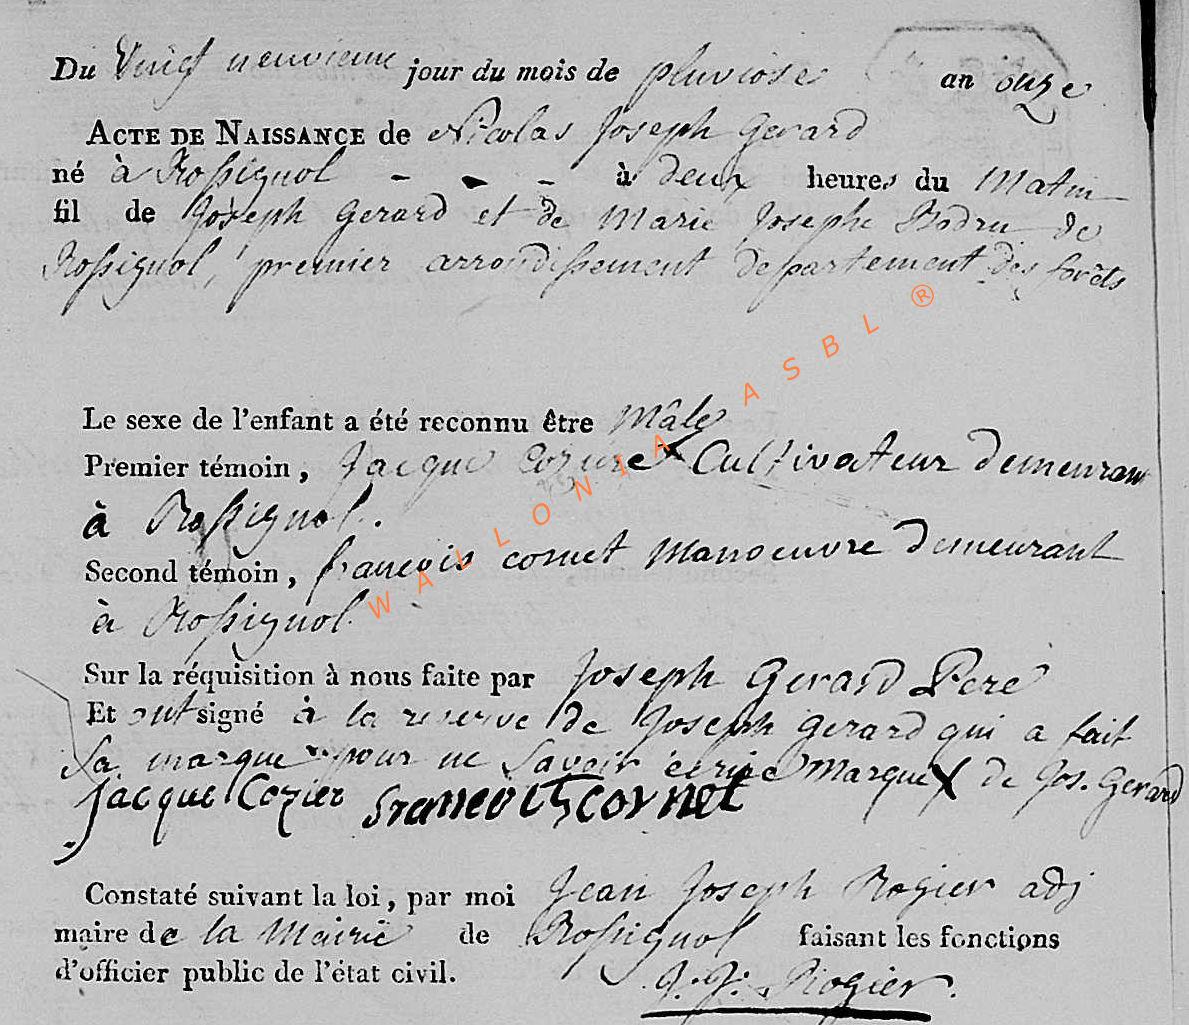 Du Vingt neuvieme jour du mois de pluviose an onze
ACTE DE NAISSANCE de Nicolas Joseph Gerard
né à Rossignol - - - à deux heures du Matin
fil de Joseph Gerard et de Marie Josephe de
Rossignol, premier arrondissement departement des forêts
Le sexe de l'enfant a été reconnu être Mâle
Premier témoin, Jacque Cultivateur demeurant
à Rossignol.
Second témoin, francois cornet Manoeuvre demeurant
à Rossignol.
Sur la réquisition à nous faite par Joseph Gerard Pere
Et ont signé à la reserve de Joseph Gerard qui a fait
Sa marque pour ne Savoir écrire Marque X de Jos. Gerard
Jacque Cozier francois cornet
Constaté suivant la loi, par moi Jean Joseph Rogier adj
maire de la Mairie de Rossignol faisant les fonctions
d'officier public de l'état civil.
J. J. Rogier.
WALLONIA ASBL ®